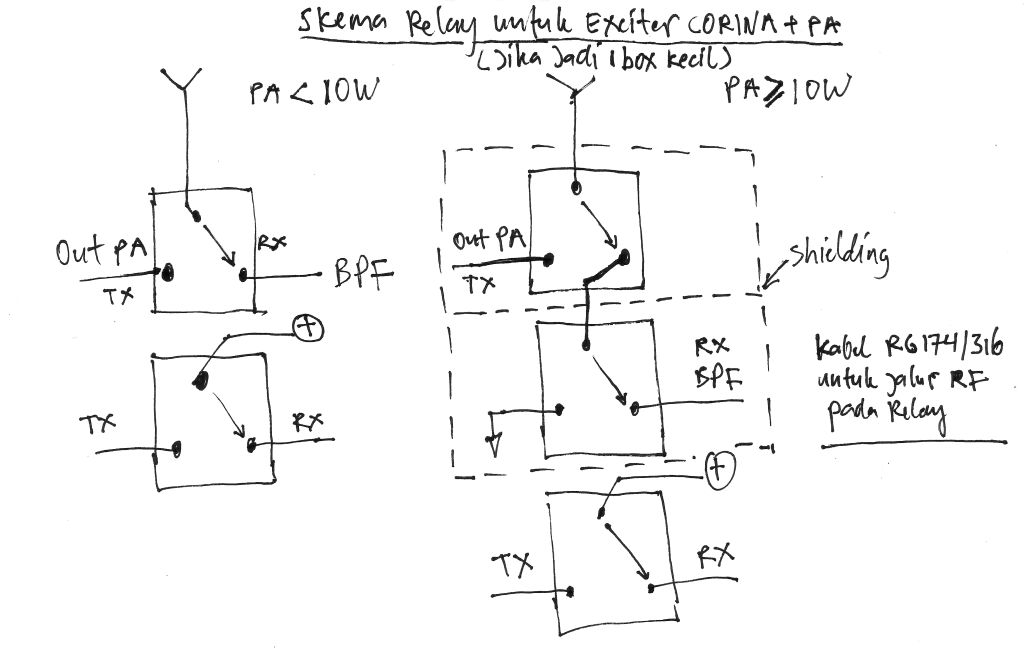 Skema Relay untuk Exciter CORINA + PA
(Jika Jadi 1 box kecil)
PA < 10W
PA ≥ 10W
Out PA
TX
RX
BPF
+
TX
RX
Out PA
TX
shielding
RX
BPF
Kabel RG174/316
untuk jalur RF
pada Relay
+
TX
RX